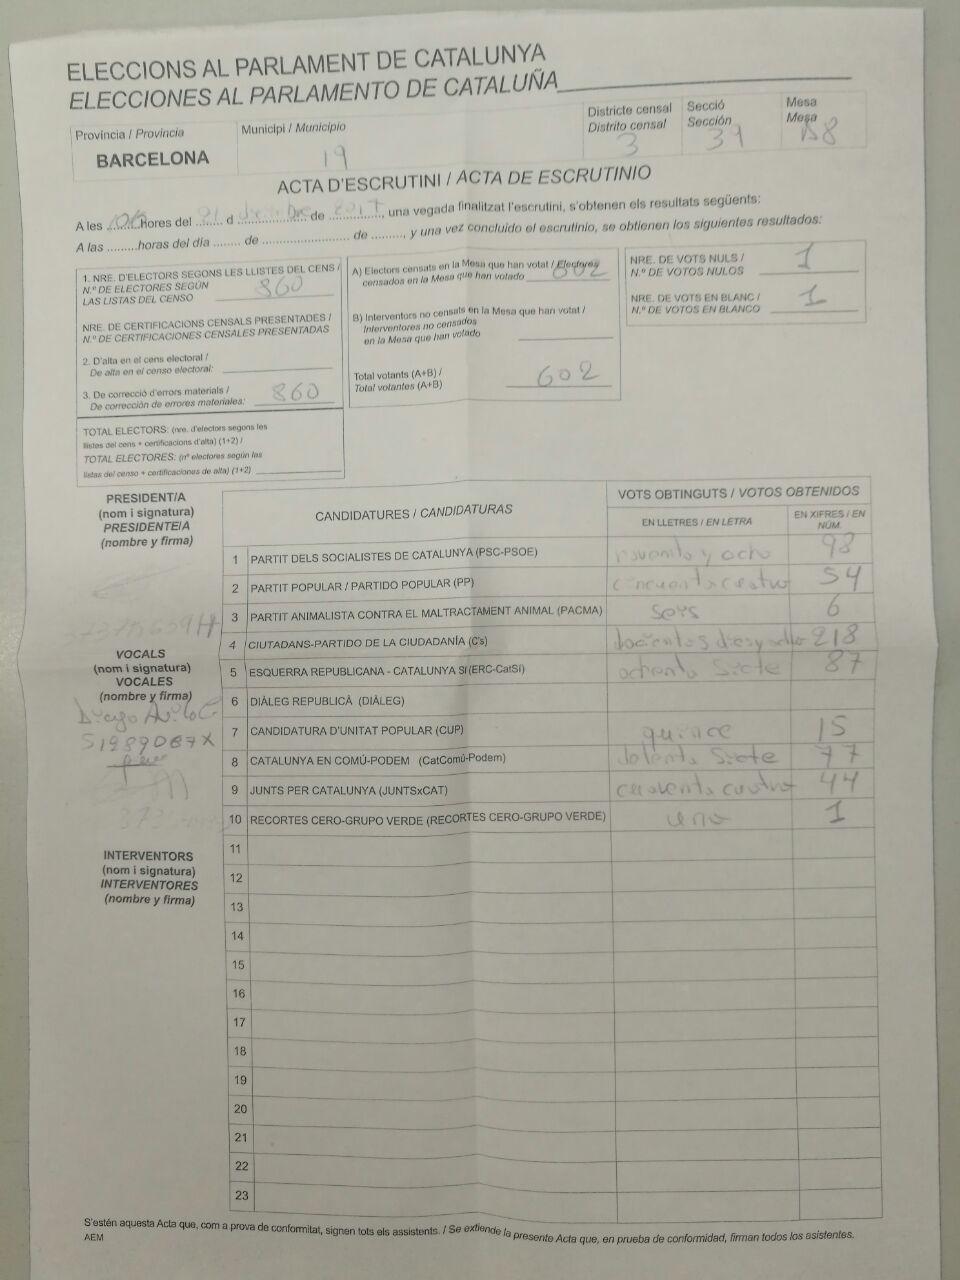 ELECCIONS AL PARLAMENT DE CATALUNYA
ELECCIONES AL PARLAMENTO DE CATALUÑA
Provincia / Provincia
BARCELONA
Municipi / Municipio
19
Districte censal
Distrito censal
3
Secció
Sección
39
Mesa
Mesa
ACTA D'ESCRUTINI / ACTA DE ESCRUTINIO
A les ......... hores del 21 d ............... de 2017, una vegada finalitzat l'escrutini, s'obtenen els resultats següents:
A las .........horas del día ....... de ...................... de ........., y una vez concluido el escrutinio, se obtienen los siguientes resultados:
1. NRE. D'ELECTORS SEGONS LES LLISTES DEL CENS /
N.º DE ELECTORES SEGÚN
LAS LISTAS DEL CENSO
860
NRE. DE CERTIFICACIONS CENSALS PRESENTADES /
N.º DE CERTIFICACIONES CENSALES PRESENTADAS
2. D'alta en el cens electoral /
De alta en el censo electoral:
3. De correcció d'errors materials /
De corrección de errores materiales:
860
TOTAL ELECTORS: (nre. d'electors segons les
llistes del cens + certificacions d'alta) (1+2) /
TOTAL ELECTORES: (nº electores según las
listas del censo + certificaciones de alta) (1+2)
A) Electors censats en la Mesa que han votat / Electores
censados en la Mesa que han votado
602
B) Interventors no censats en la Mesa que han votat /
Interventores no censados
en la Mesa que han votado
Total votants (A+B) /
Total votantes (A+B)
602
NRE. DE VOTS NULS /
N.º DE VOTOS NULOS
1
NRE. DE VOTS EN BLANC /
N.º DE VOTOS EN BLANCO
1
PRESIDENT/A
(nom i signatura)
PRESIDENTE/A
(nombre y firma)
VOCALS
(nom i signatura)
VOCALES
(nombre y firma)
INTERVENTORS
(nom i signatura)
INTERVENTORES
(nombre y firma)
CANDIDATURES / CANDIDATURAS
VOTS OBTINGUTS / VOTOS OBTENIDOS
EN LLETRES / EN LETRA
EN XIFRES / EN NÚM.
1 PARTIT DELS SOCIALISTES DE CATALUNYA (PSC-PSOE) noventa y ocho 98
2 PARTIT POPULAR / PARTIDO POPULAR (PP) cincuenta cuatro 54
3 PARTIT ANIMALISTA CONTRA EL MALTRACTAMENT ANIMAL (PACMA) seis 6
4 CIUTADANS-PARTIDO DE LA CIUDADANÍA (C's) 218
5 ESQUERRA REPUBLICANA - CATALUNYA SÍ (ERC-CatSí) ochenta siete 87
6 DIÀLEG REPUBLICÀ (DIÀLEG)
7 CANDIDATURA D'UNITAT POPULAR (CUP) quince 15
8 CATALUNYA EN COMÚ-PODEM (CatComú-Podem) siete 77
9 JUNTS PER CATALUNYA (JUNTSxCAT) cuatro 44
10 RECORTES CERO-GRUPO VERDE (RECORTES CERO-GRUPO VERDE) uno 1
11
12
13
14
15
16
17
18
19
20
21
22
23
S'estén aquesta Acta que, com a prova de conformitat, signen tots els assistents. / Se extiende la presente Acta que, en prueba de conformidad, firman todos los asistentes.
AEM